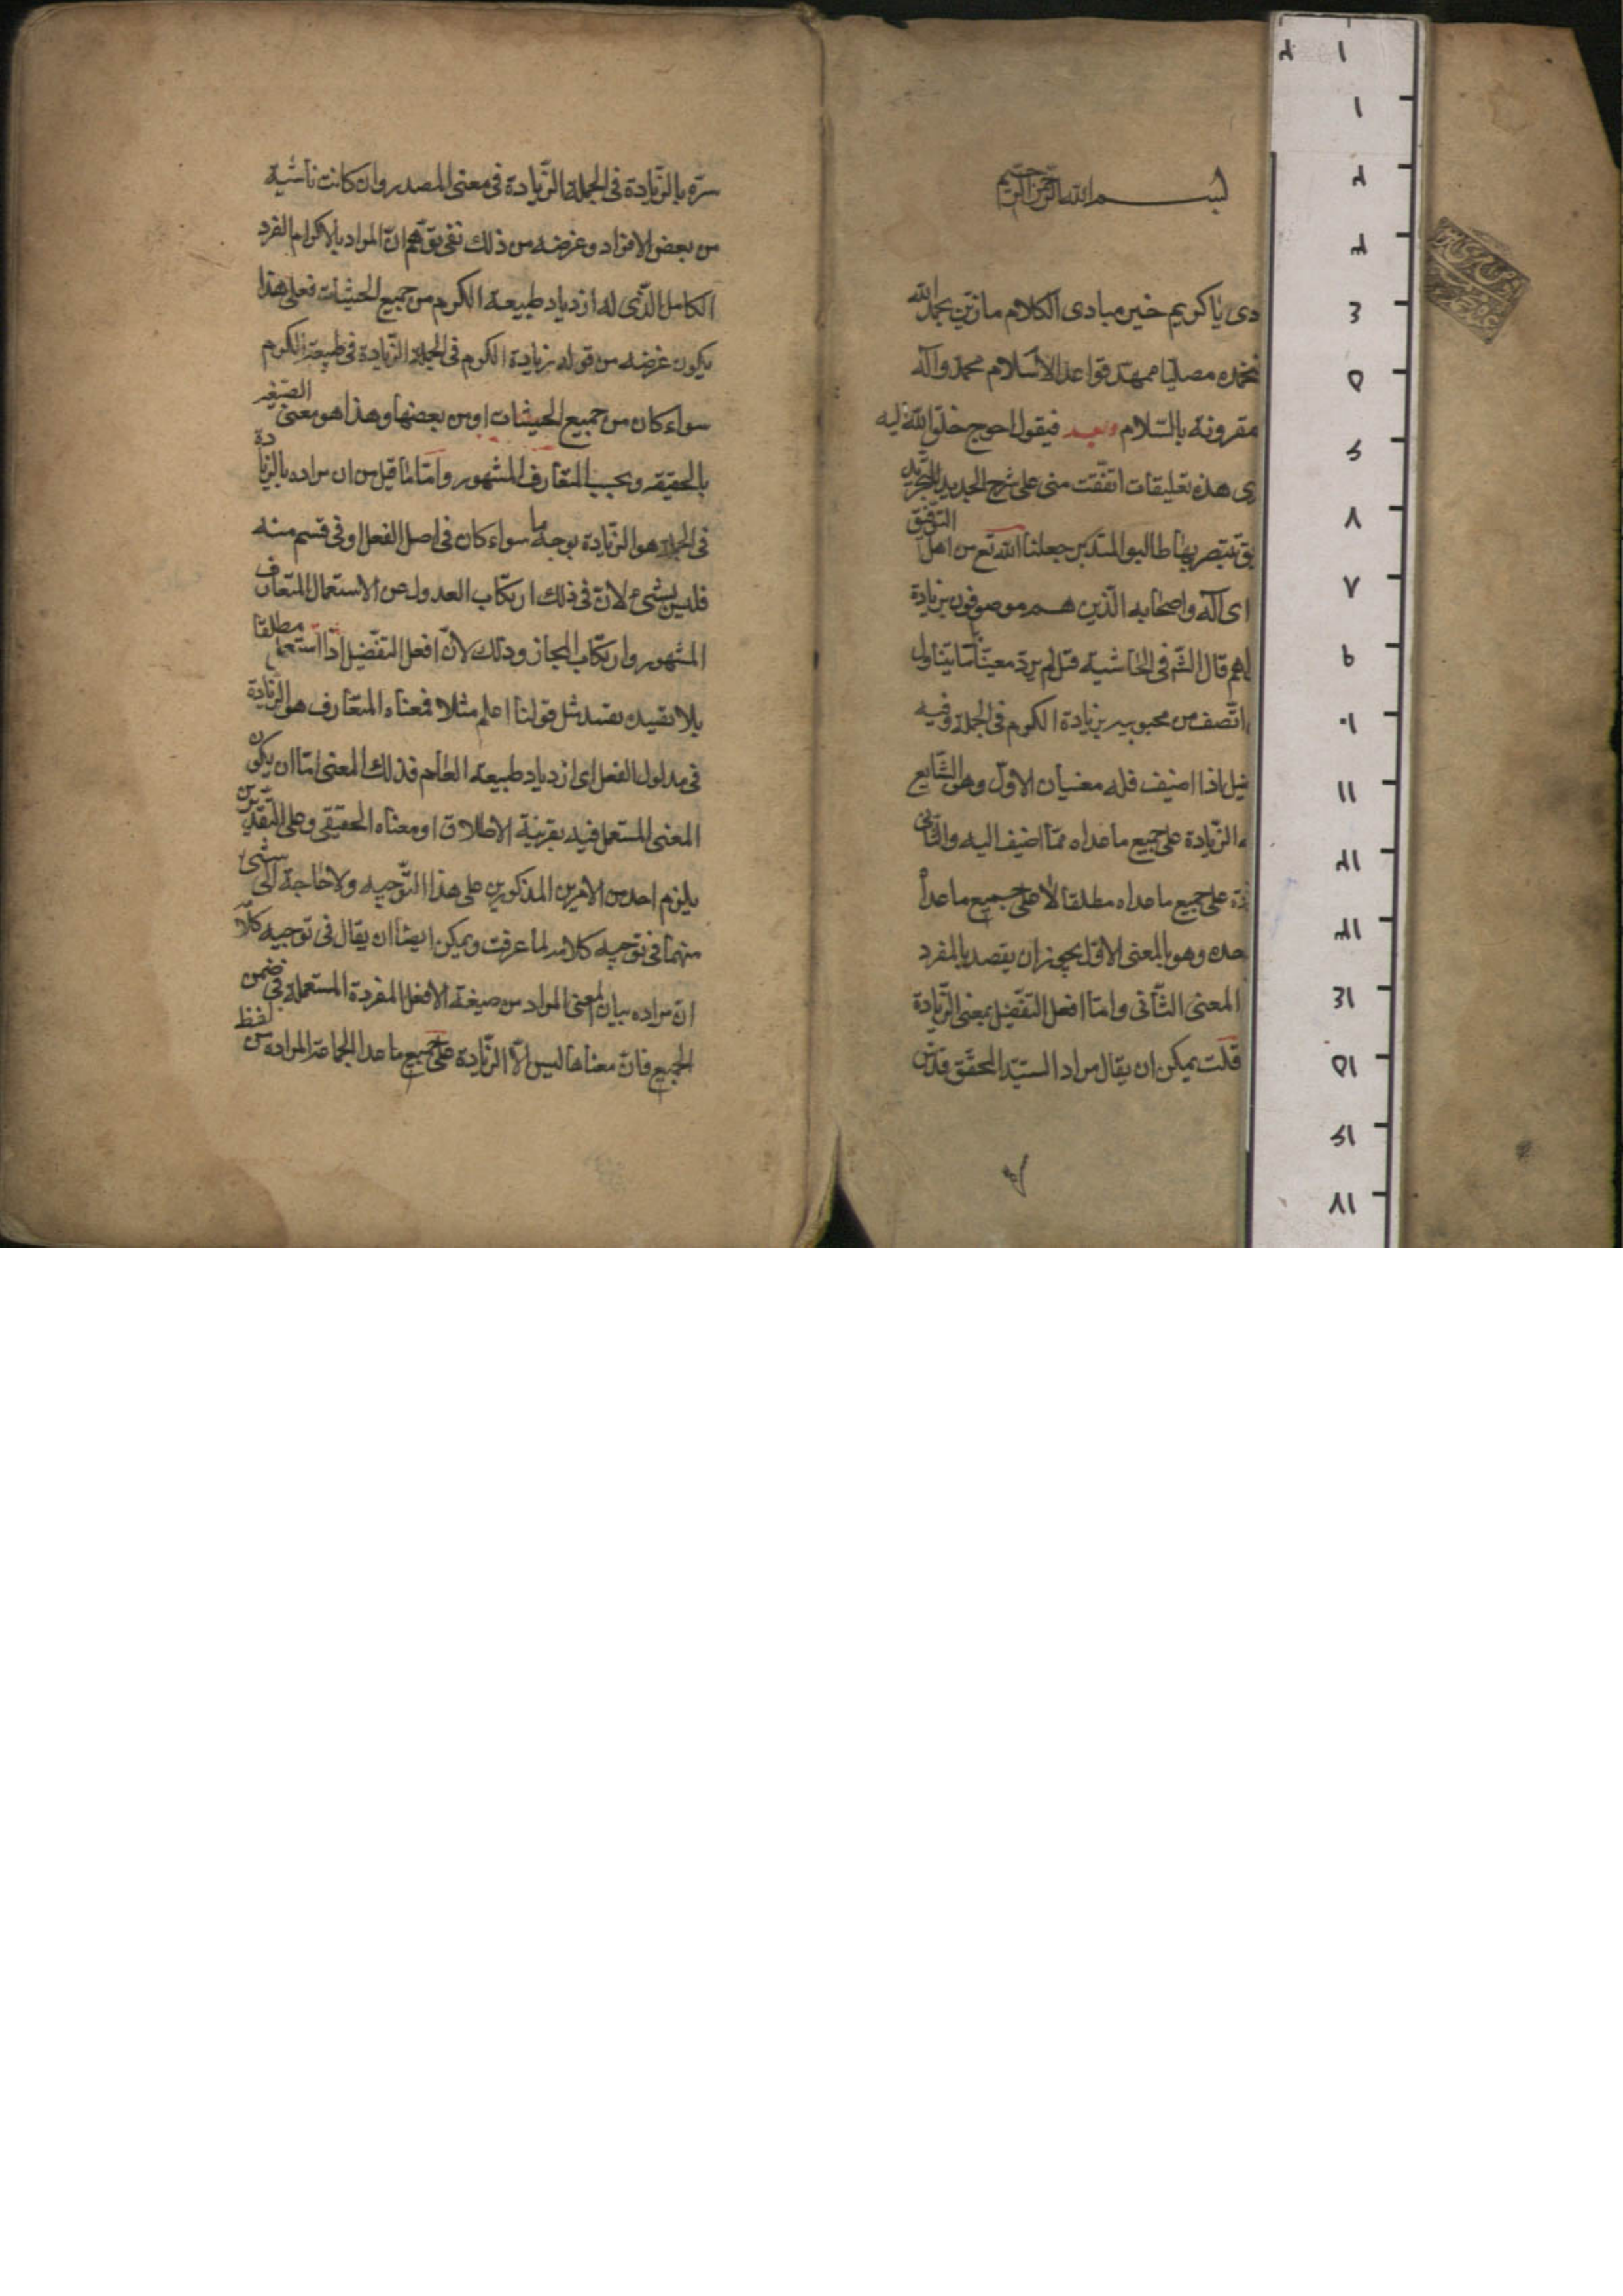 بسم الله الرحمن الرحيم
دى يا كريم خير مبادى الكلام ما زيّن بحمد الله
نحمده مصليا ممهّد قواعد الاسلام محمد وآله
مقرونة بالسّلام وبعد فيقول احوج خلق الله اليه
رى هذه تعليقات اتّفقت منى على شرح الجديد للتجريد
يتبصر بها طالبو جعلنا الله تع من اهل التوفيق
اى آله واصحابه الّذين هم موصوفون بزيادة
قال الشّ فى الحاشية قيل لم يرد معيّنا يتناول
اتّصف من محبوبيه بزيادة الكرم فى الجملة وفيه
ضيل اذا اضيف فله معنيان الاول وهو الشّايع
ه الزّيادة على جميع ما عداه ممّا اضيف اليه والثّانى
دة على جميع ما عداه مطلقا لا على جميع ما عدا
حده وهو بالمعنى الاوّل يجوز ان يقصد بالمفرد
المعنى الثّانى وامّا افعل التفضيل بمعنى الزّيادة
قلت يمكن ان يقال مراد السيّد المحقّق قدّس
سرّه بالزّيادة فى الجملة الزّيادة فى معنى المصدر وان كانت ناشية
من بعض الافراد وغرضه من ذلك انّ المراد بالاكرام الفرد
الكامل الّذى له ازدياد طبيعة الكرم من جميع الحيثيات فعلى هذا
يكون غرضه من قوله بزيادة الكرم فى الجملة الزّيادة فى طبيعة الكرم
سواء كان من جميع الحيثيات او من بعضها وهذا هو معنى الصّيغة
بالحقيقة وبحسب المتعارف المشهور وامّا ما قيل من ان مراده بالزيادة
فى الجملة هو الزّيادة بوجه ما سواء كان فى اصل الفعل او فى قسم منه
فليس بشىء لانّ فى ذلك ارتكاب العدول عن الاستعمال المتعارف
المشهور وارتكاب المجاز وذلك لانّ افعل التفضيل اذا استعمل مطلقا
بلا تقييده بقيد مثل قولنا اعلم مثلا فمعناه المتعارف هو الزيادة
فى مدلول الفعل اى ازدياد طبيعة العلم فذلك المعنى امّا ان يكون
المعنى المستعمل فيه بقرينة الاطلاق او معناه الحقيقى وعلى التّقديرين
يلزم احد من الامرين المذكورين على هذا التّوجيه ولا حاجة الى شىء
منهما فى توجيه كلامه لما عرفت ويمكن ايضا ان يقال فى توجيه كلامه
انّ مراده بيان المعنى المراد من صيغة الافعل المفردة المستعملة فى ضمن
الجميع فانّ معناها ليس الّا الزّيادة على جميع ما عدا الجماعة المراده من لفظ